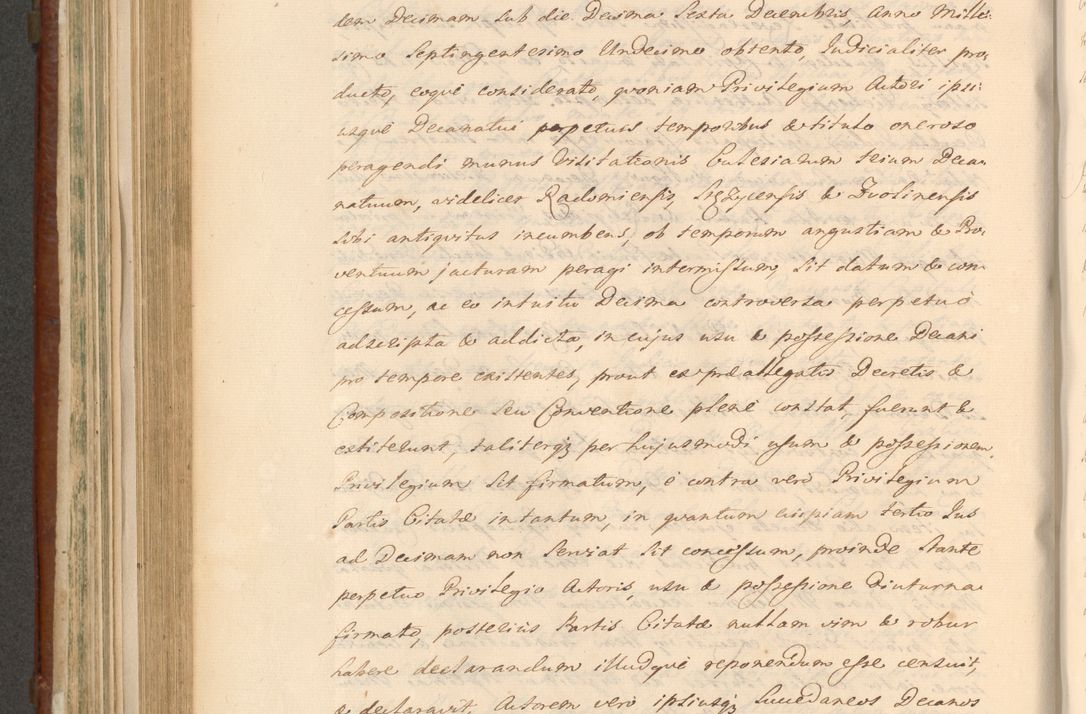 dem Decimam sub die Decima Sexta Decembris, Anno Mille:
simo Septingentesimo Undecimo obtento, Judicialiter pro:
ducto, eoque considerato, qvoniam Privilegium Actori ipsi:
usque Decanatui perpetuis temporibus & titulo oneroso
peragendi munus Visitationis Eclesiarum trium Deca:
natuum, videlicet Radomiensis, Stęzycensis & Zvolinensis
sibi antiqvitus incumbens, ob temporum angustiam & Pro:
ventuum jacturam peragi intermissum, sit datum & con:
cessum, ac eo intuitu Decima controversa perpetuò
adscripta & addicta, in cujus usu & possessione Decani
pro tempore existentes, prout ex præallegatis Decretis &
Compositione seu Conventione plenè constat, fuerunt &
extiterunt, taliterq; per hujusmodi usum & possessionem,
Privilegium sit firmatum, è contra verò Privilegium
Partis Citatæ in tantum, in qvantum cuipiam tertio Jus
ad Decimam non serviat sit concessum, proinde stante
perpetuo Privilegio Actoris, usu & possessione diuturna
firmato, posterius Partis Citatæ nullam vim & robur
habere declarandum illudque reponendum esse censuit,
& declaravit, Actorem vero ipsiusq; Succedaneos Decanos